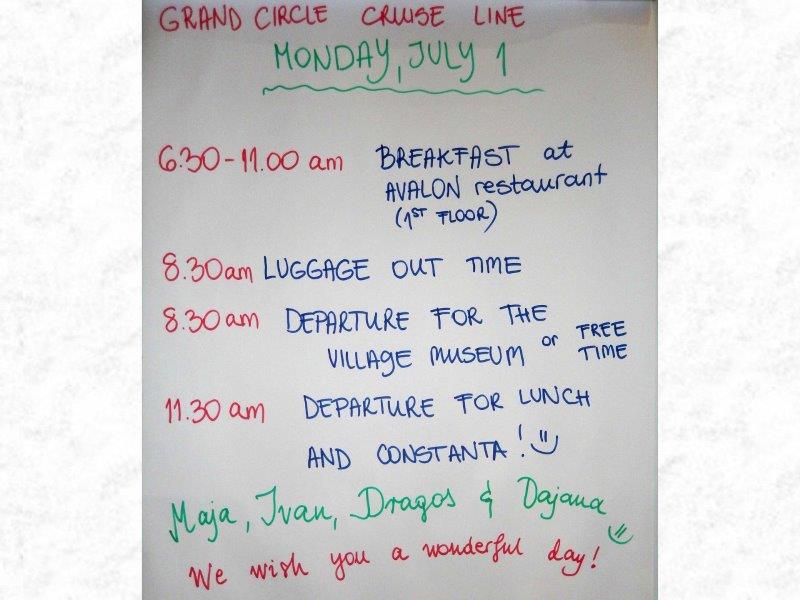 GRAND CIRCLE CRUISE LINE
MONDAY, JULY 1
6.30-11.00 am BREAKFAST at
AVALON restaurant
(1ST FLOOR)
8.30am LUGGAGE OUT TIME
8.30 am DEPARTURE FOR THE
VILLAGE MUSEUM or FREE TIME
11.30 am DEPARTURE FOR LUNCH
AND CONSTANTA!
Maja, Ivan, Dragos & Dajana
We wish you a wonderful day!